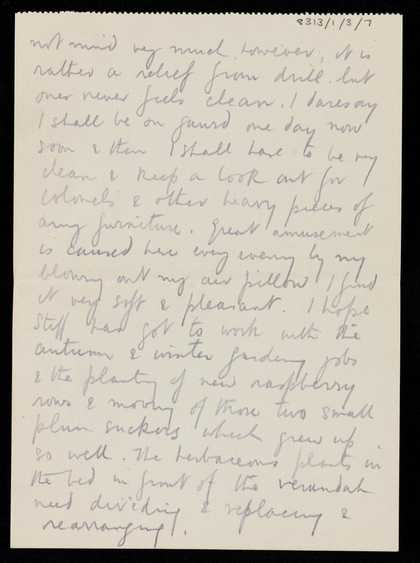 8313/1/3/7
not mind very much however, it is
rather a relief from drill. but
one never feels clean. I daresay
I shall be on guard one day now
soon & then I shall have to be very
clean & keep a look out for
Colonels & other heavy pieces of
army furniture. Great amusement
is caused here every evening by my
blowing out my air pillow. I find
it very soft & pleasant. I hope
has got to work with the
autumn & winter gardening jobs
& the planting of new raspberry
rows & moving of those two small
plum suckers which grew up
so well. The herbaceous plants in
the bed in front of the verandah
need dividing & replacing &
rearranging.